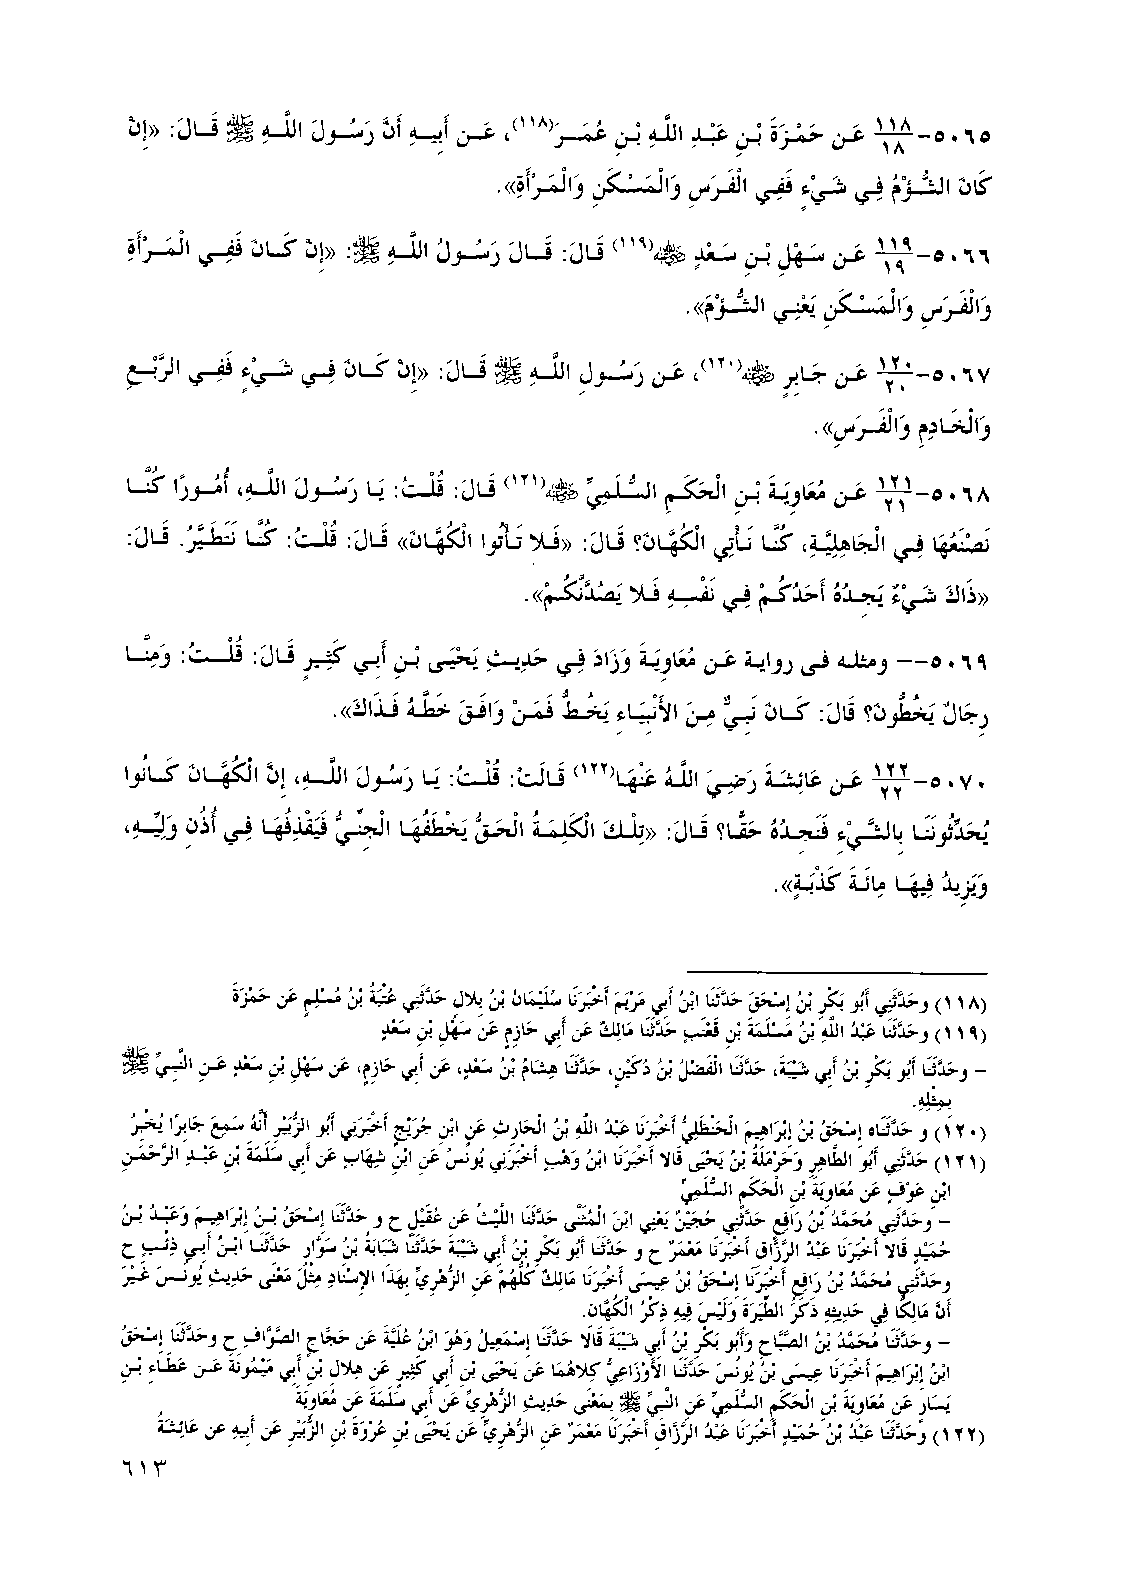 ٥٠٦٥- ١١٨/١٨ عَـن حَمْـزَةَ بْـنِ عَبْـدِ اللَّـهِ بْـنِ عُمَـرَ(١١٨)، عَـن أَبِيـهِ أَنَّ رَسُـولَ اللَّـهِ ﷺ قَـالَ: «إِنْ
كَانَ الشُّـؤْمُ فِـي شَـيْءٍ فَفِي الْفَرَسِ وَالْمَسْـكَنِ وَالْمَـرْأَةِ».
٥٠٦٦- ١١٩/١٩ عَـن سَهْلِ بْـنِ سَـعْدٍ ﷺ(١١٩) قَـالَ: قَـالَ رَسُـولُ اللَّـهِ ﷺ: «إِنْ كَـانَ فَفِـي الْمَـرْأَةِ
وَالْفَـرَسِ وَالْمَسْـكَنِ يَعْنِـي الشُّـؤْمَ».
٥٠٦٧- ١٢٠/٢٠ عَـن جَـابِرٍ ﷺ(١٢٠)، عَـن رَسُـولِ اللَّـهِ ﷺ قَـالَ: «إِنْ كَـانَ فِـي شَـيْءٍ فَفِـي الرَّبْـعِ
وَالْخَـادِمِ وَالْفَـرَسِ».
٥٠٦٨- ١٢١/٢١ عَـن مُعَاوِيَـةَ بْـنِ الْحَكَـمِ السُّـلَمِيِّ ﷺ(١٢١) قَـالَ: قُلْـتُ: يَـا رَسُـولَ اللَّـهِ، أُمُـورًا كُنَّـا
نَصْنَعُهَا فِـي الْجَاهِلِيَّـةِ، كُنَّـا نَـأْتِي الْكُهَّـانَ؟ قَـالَ: «فَـلا تَـأْتُوا الْكُهَّـانَ» قَـالَ: قُلْـتُ: كُنَّـا نَتَطَيَّـرُ. قَـالَ:
«ذَاكَ شَـيْءٌ يَجِـدُهُ أَحَدُكُـمْ فِـي نَفْسِـهِ فَـلا يَصُدَّنَّكُـمْ».
٥٠٦٩-- ومثلـه فـى روايـة عَـن مُعَاوِيَـةَ وَزَادَ فِـي حَدِيـثِ يَحْيَـى بْـنِ أَبِـي كَثِيـرٍ قَـالَ: قُلْـتُ: وَمِنَّـا
رِجَالٌ يَخُطُّونَ؟ قَالَ: كَـانَ نَبِـيٌّ مِـنَ الأَنْبِيَـاءِ يَخُـطُّ فَمَـنْ وَافَـقَ خَطَّـهُ فَـذَاكَ».
٥٠٧٠- ١٢٢/٢٢ عَـن عَائِشَـةَ رَضِـيَ اللَّـهُ عَنْهَـا(١٢٢) قَالَـتْ: قُلْـتُ: يَـا رَسُـولَ اللَّـهِ، إِنَّ الْكُهَّـانَ كَـانُوا
يُحَدِّثُونَنَـا بِالشَّـيْءِ فَنَجِـدُهُ حَقًّـا؟ قَـالَ: «تِلْـكَ الْكَلِمَـةُ الْحَـقُّ يَخْطَفُهَـا الْجِنِّـيُّ فَيَقْذِفُهَـا فِـي أُذُنِ وَلِيِّـهِ،
وَيَزِيـدُ فِيهَـا مِائَـةَ كَذْبَـةٍ».
(١١٨) وحَدَّثَنِي أَبُو بَكْرِ بْنُ إِسْحَقَ حَدَّثَنَا ابْنُ أَبِي مَرْيَمَ أَخْبَرَنَا سُلَيْمَانُ بْنُ بِلالٍ حَدَّثَنِي عُتْبَةُ بْنُ مُسْلِمٍ عَن حَمْزَةَ
(١١٩) وحَدَّثَنَا عَبْدُ اللَّهِ بْنُ مَسْلَمَةَ بْنِ قَعْنَبٍ حَدَّثَنَا مَالِكٌ عَن أَبِي حَازِمٍ عَن سَهْلِ بْنِ سَعْدٍ
– وحَدَّثَنَا أَبُو بَكْرِ بْنُ أَبِي شَيْبَةَ، حَدَّثَنَا الْفَضْلُ بْنُ دُكَيْنٍ، حَدَّثَنَا هِشَامُ بْنُ سَعْدٍ، عَن أَبِي حَازِمٍ، عَن سَهْلِ بْنِ سَعْدٍ عَـنِ النَّبِـيِّ ﷺ
بِمِثْلِهِ.
(١٢٠) و حَدَّثَنَاه إِسْحَقُ بْنُ إِبْرَاهِيمَ الْحَنْظَلِيُّ أَخْبَرَنَا عَبْدُ اللَّهِ بْنُ الْحَارِثِ عَنِ ابْنِ جُرَيْجٍ أَخْبَرَنِي أَبُو الزُّبَيْرِ أَنَّهُ سَمِعَ جَابِرًا يُخْبِرُ
(١٢١) حَدَّثَنِي أَبُو الطَّاهِرِ وَحَرْمَلَةُ بْنُ يَحْيَى قَالا أَخْبَرَنَا ابْنُ وَهْبٍ أَخْبَرَنِي يُونُسُ عَنِ ابْنِ شِهَابٍ عَن أَبِي سَلَمَةَ بْنِ عَبْـدِ الرَّحْمَـنِ
ابْنِ عَوْفٍ عَن مُعَاوِيَةَ بْنِ الْحَكَمِ السُّلَمِيِّ
– وحَدَّثَنِي مُحَمَّدُ بْنُ رَافِعٍ حَدَّثَنِي حُجَيْنٌ يَعْنِي ابْنَ الْمُثَنَّى حَدَّثَنَا اللَّيْثُ عَن عُقَيْلٍ ح و حَدَّثَنَا إِسْحَقُ بْـنُ إِبْرَاهِيـمَ وَعَبْـدُ بْـنُ
حُمَيْدٍ قَالا أَخْبَرَنَا عَبْدُ الرَّزَّاقِ أَخْبَرَنَا مَعْمَرٌ ح و حَدَّثَنَا أَبُو بَكْرِ بْنُ أَبِي شَيْبَةَ حَدَّثَنَا شَبَابَةُ بْنُ سَوَّارٍ حَدَّثَنَـا ابْـنُ أَبِـي ذِئْـبٍ ح
وحَدَّثَنِي مُحَمَّدُ بْنُ رَافِعٍ أَخْبَرَنَا إِسْحَقُ بْنُ عِيسَى أَخْبَرَنَا مَالِكٌ كُلُّهُمْ عَنِ الزُّهْرِيِّ بِهَذَا الإِسْنَادِ مِثْلَ مَعْنَى حَدِيثِ يُونُـسَ غَيْـرَ
أَنَّ مَالِكًا فِي حَدِيثِهِ ذَكَرَ الطِّيَرَةَ وَلَيْسَ فِيهِ ذِكْرُ الْكُهَّانِ.
– وحَدَّثَنَا مُحَمَّدُ بْنُ الصَّبَّاحِ وَأَبُو بَكْرِ بْنُ أَبِي شَيْبَةَ قَالا حَدَّثَنَا إِسْمَعِيلُ وَهُوَ ابْنُ عُلَيَّةَ عَن حَجَّاجٍ الصَّوَّافِ ح وحَدَّثَنَا إِسْحَقُ
ابْنُ إِبْرَاهِيمَ أَخْبَرَنَا عِيسَى بْنُ يُونُسَ حَدَّثَنَا الأَوْزَاعِيُّ كِلاهُمَا عَن يَحْيَى بْنِ أَبِي كَثِيرٍ عَن هِلالِ بْنِ أَبِي مَيْمُونَةَ عَـن عَطَـاءِ بْـنِ
يَسَارٍ عَن مُعَاوِيَةَ بْنِ الْحَكَمِ السُّلَمِيِّ عَنِ النَّبِيِّ ﷺ بِمَعْنَى حَدِيثِ الزُّهْرِيِّ عَن أَبِي سَلَمَةَ عَن مُعَاوِيَةَ
(١٢٢) وحَدَّثَنَا عَبْدُ بْنُ حُمَيْدٍ أَخْبَرَنَا عَبْدُ الرَّزَّاقِ أَخْبَرَنَا مَعْمَرٌ عَنِ الزُّهْرِيِّ عَن يَحْيَى بْنِ عُرْوَةَ بْنِ الزُّبَيْرِ عَن أَبِيهِ عَن عَائِشَةَ
٦١٣